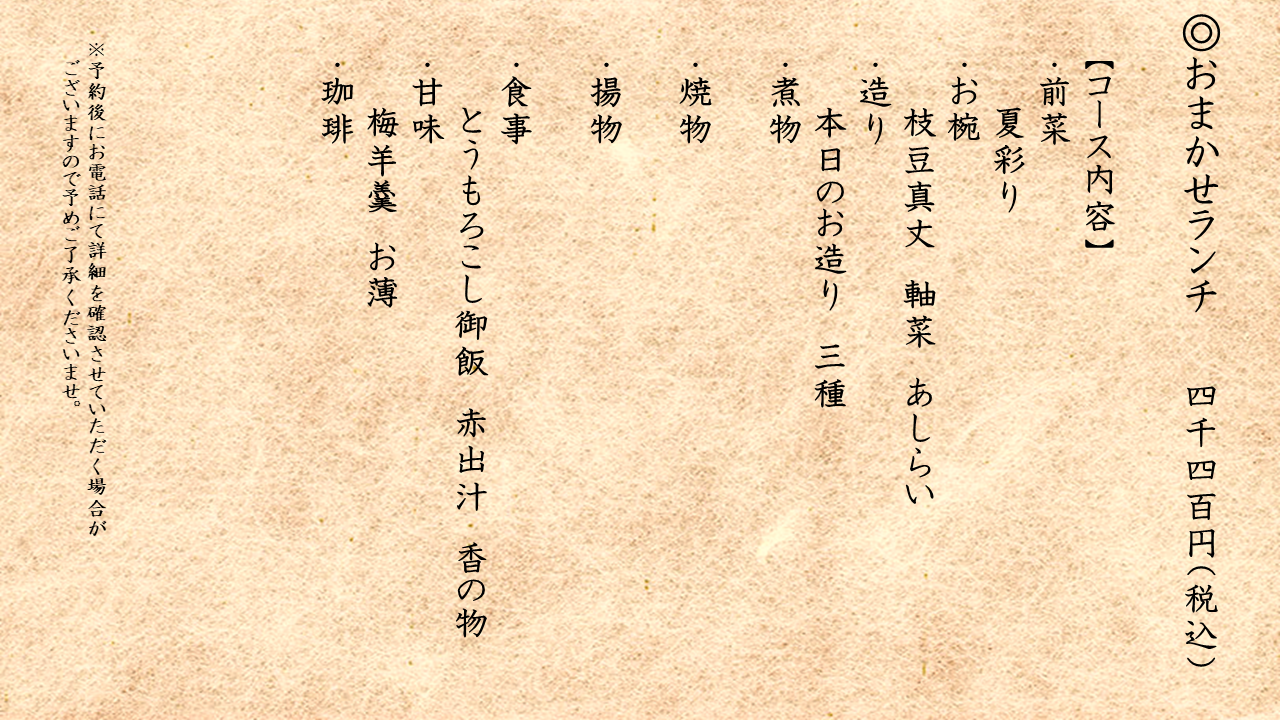 ◎おまかせランチ　四千四百円（税込）
【コース内容】
・前菜
夏彩り
・お椀
枝豆真丈　軸菜　あしらい
・造り
本日のお造り　三種
・煮物
・焼物
・揚物
・食事
とうもろこし御飯　赤出汁　香の物
・甘味
梅羊羹　お薄
・珈琲
※予約後にお電話にて詳細を確認させていただく場合が
ございますので予めご了承くださいませ。